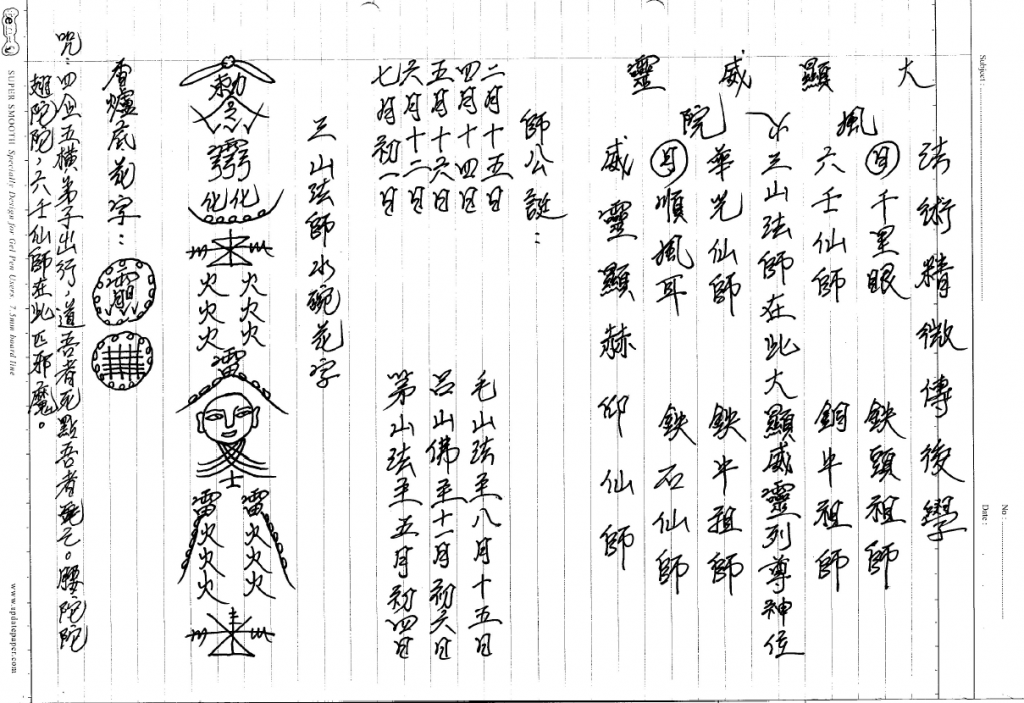 大顯威靈
風院
法術精微傳後學
千里眼 鉄頭祖師
六壬仙師 銅牛祖師
三山法師在此大顯威靈列尊神位
華光仙師 鉄牛祖師
順風耳 鉄石仙師
威靈顯赫仰仙師
師公誕：
二月十五日
四月十四日
五月十六日
六月十二日
七月初一日
毛山法主八月十五日
呂山佛主十一月初六日
第山法主五月初四日
三山法師水碗花字
勅令
化化
火火
火火
火火
雷
士
雷雷
火火
火火
火火
香爐底花字：
咒：四伹五橫弟子出行，道吾者死點吾者。腰陀陀
翅陀陀，六壬仙師在此匹邪魔。
Subject :
No :
Date :
SUPER SMOOTH Specialle Design for Gel Pen Users. 7.5mm board line
www.updatepaper.com